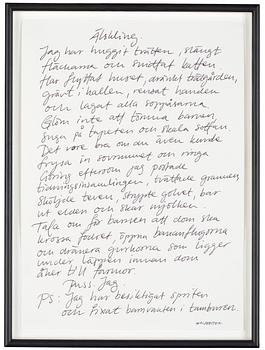 Älskling.
Jag har huggit tvätten, slängt
fläckarna och smottat katten
Har flyttat huset, dränkt trädgården,
grävt i hallen, rensat handen
och lagat alla soppåsarna
Glöm inte att tömma barnen,
suga på tapeten och skala soffan.
Det vore bra om du även kunde
frysa in sovrummet och ringa
Göring eftersom jag postade
tidningsinsamlingen, tvättade grannen
sköljde teven, strypte golvet, bar
ut elden och skar mjölken.
Tala om för barnen att dom ska
krossa fodret, öppna bananflugorna
och dränera gurkorna som ligger
under läppen innan dom
åker till farmor.
Puss. Jag.
PS: Jag har besiktigat spriten
och fixat barnvakten i tamburen.